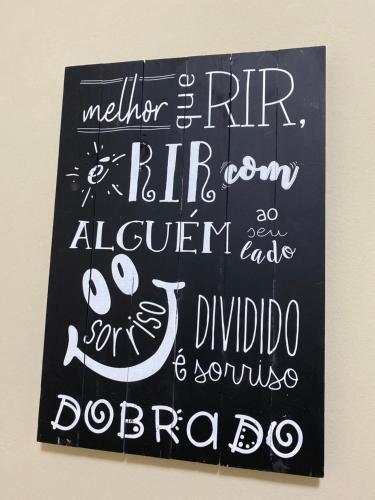 melhor que RIR,
é RIR com
ALGUÉM ao seu lado
sorriso DIVIDIDO
é sorriso
DOBRADO